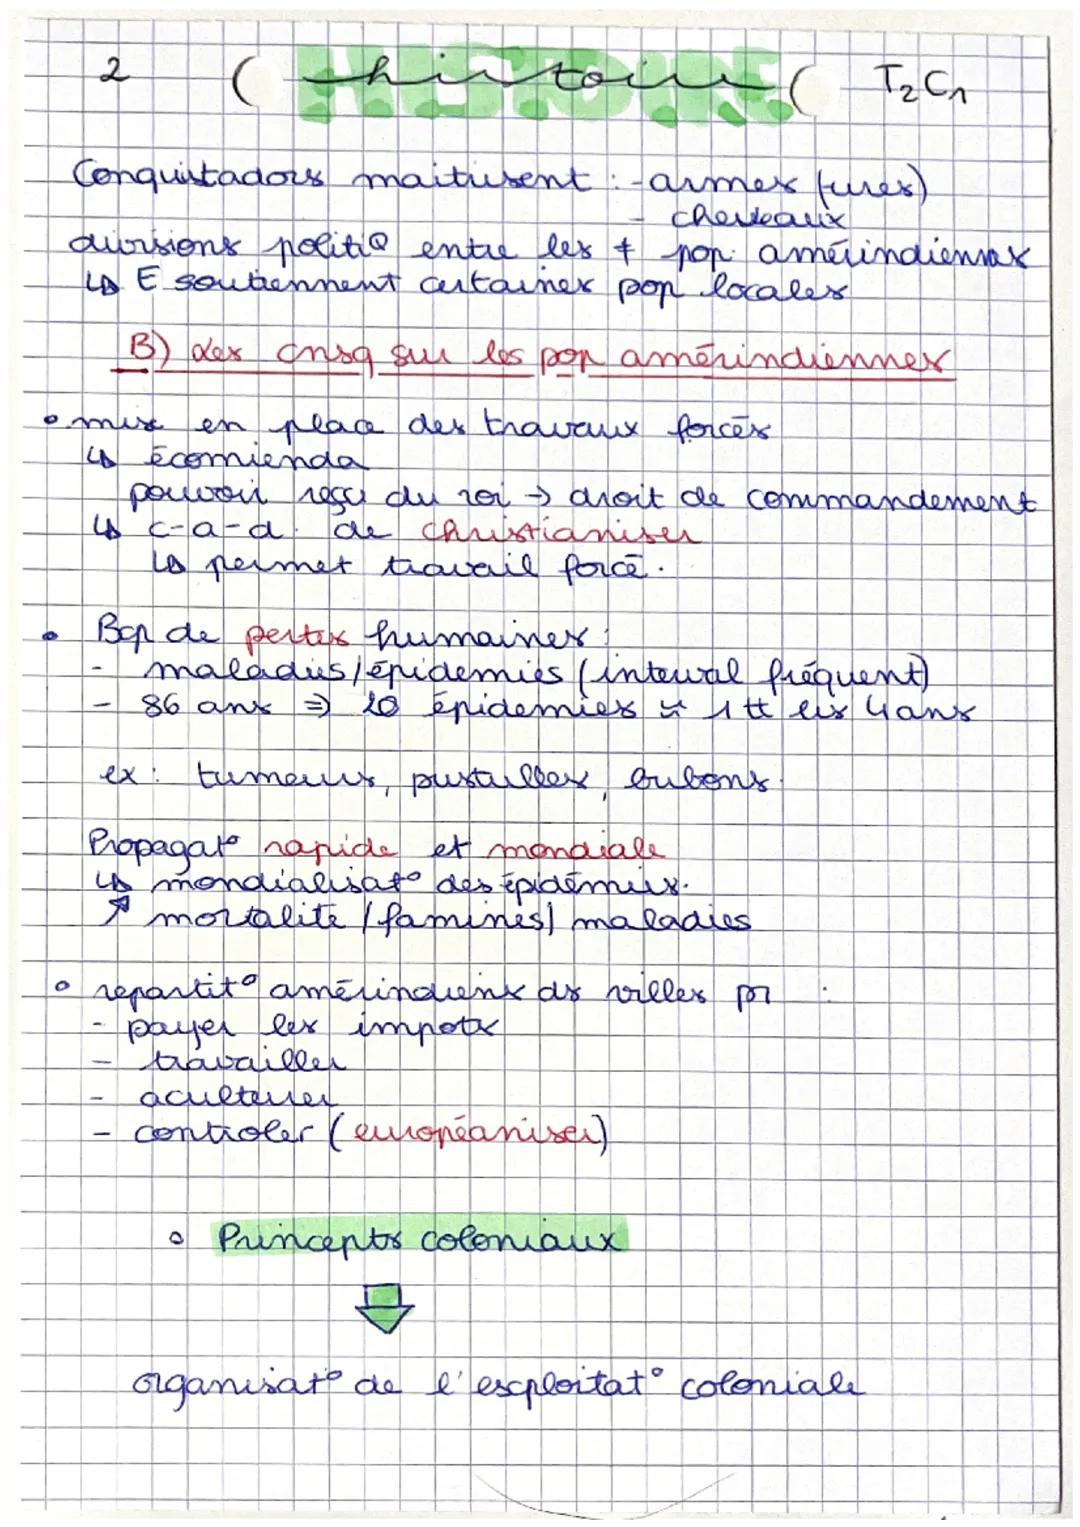 2 HISTOIRE histoire T2C1
Conquistadors maitrisent : - armes (ures)
- cheveaux
divisions politiQ entre les ≠ pop. amérindiennes
↳ E soutiennent certaines pop locales
B) Les cnsq sur les pop amérindiennes
• mise en place des travaux forcés
↳ écomienda
pouvoir reçu du roi → droit de commandement
↳ c-a-d. de christianiser
↳ permet travail forcé.
• Bcp de pertes humaines :
- maladies/épidemies (interval fréquent)
- 86 ans ⇒ 20 épidemies ≈ 1 tt les 4 ans
ex : tumeurs, pustulles, bubons.
Propagat° rapide et mondiale
↳ mondialisat° des épidémies.
↗ mortalité / famines / maladies
• repartit° amérindiens ds villes pr :
- payer les impots
- travailler
- aculturer
- controler (européaniser)
• Princepts coloniaux
⇩
organisat° de l'exploitat° coloniale